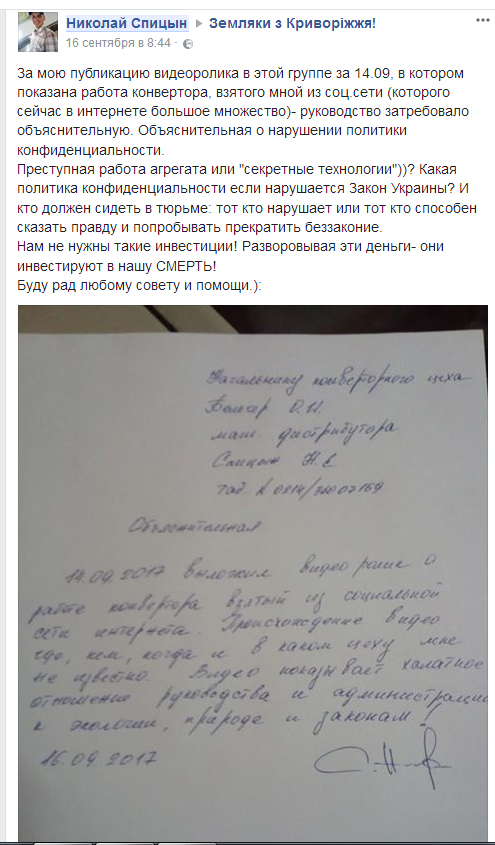 Николай Спицын ▸ Земляки з Криворіжжя!
16 сентября в 8:44 ·
За мою публикацию видеоролика в этой группе за 14.09, в котором
показана работа конвертора, взятого мной из соц.сети (которого
сейчас в интернете большое множество)- руководство затребовало
объяснительную. Объяснительная о нарушении политики
конфиденциальности.
Преступная работа агрегата или "секретные технологии"))? Какая
политика конфиденциальности если нарушается Закон Украины? И
кто должен сидеть в тюрьме: тот кто нарушает или тот кто способен
сказать правду и попробывать прекратить беззаконие.
Нам не нужны такие инвестиции! Разворовывая эти деньги- они
инвестируют в нашу СМЕРТЬ!
Буду рад любому совету и помощи.):
Начальнику конверторного цеха
О.И.
маш. дистрибутора
Спицын Н.Е.
таб. № 0214/
Объяснительная
14.09.2017 выложил видео ролик о
работе конвертора взятый из социальной
сети интернета. Происхождение видео
где, кем, когда и в каком цеху мне
не известно. Видео показывает халатное
отношение руководства и администрации
к экологии, природе и законам!
16.09.2017